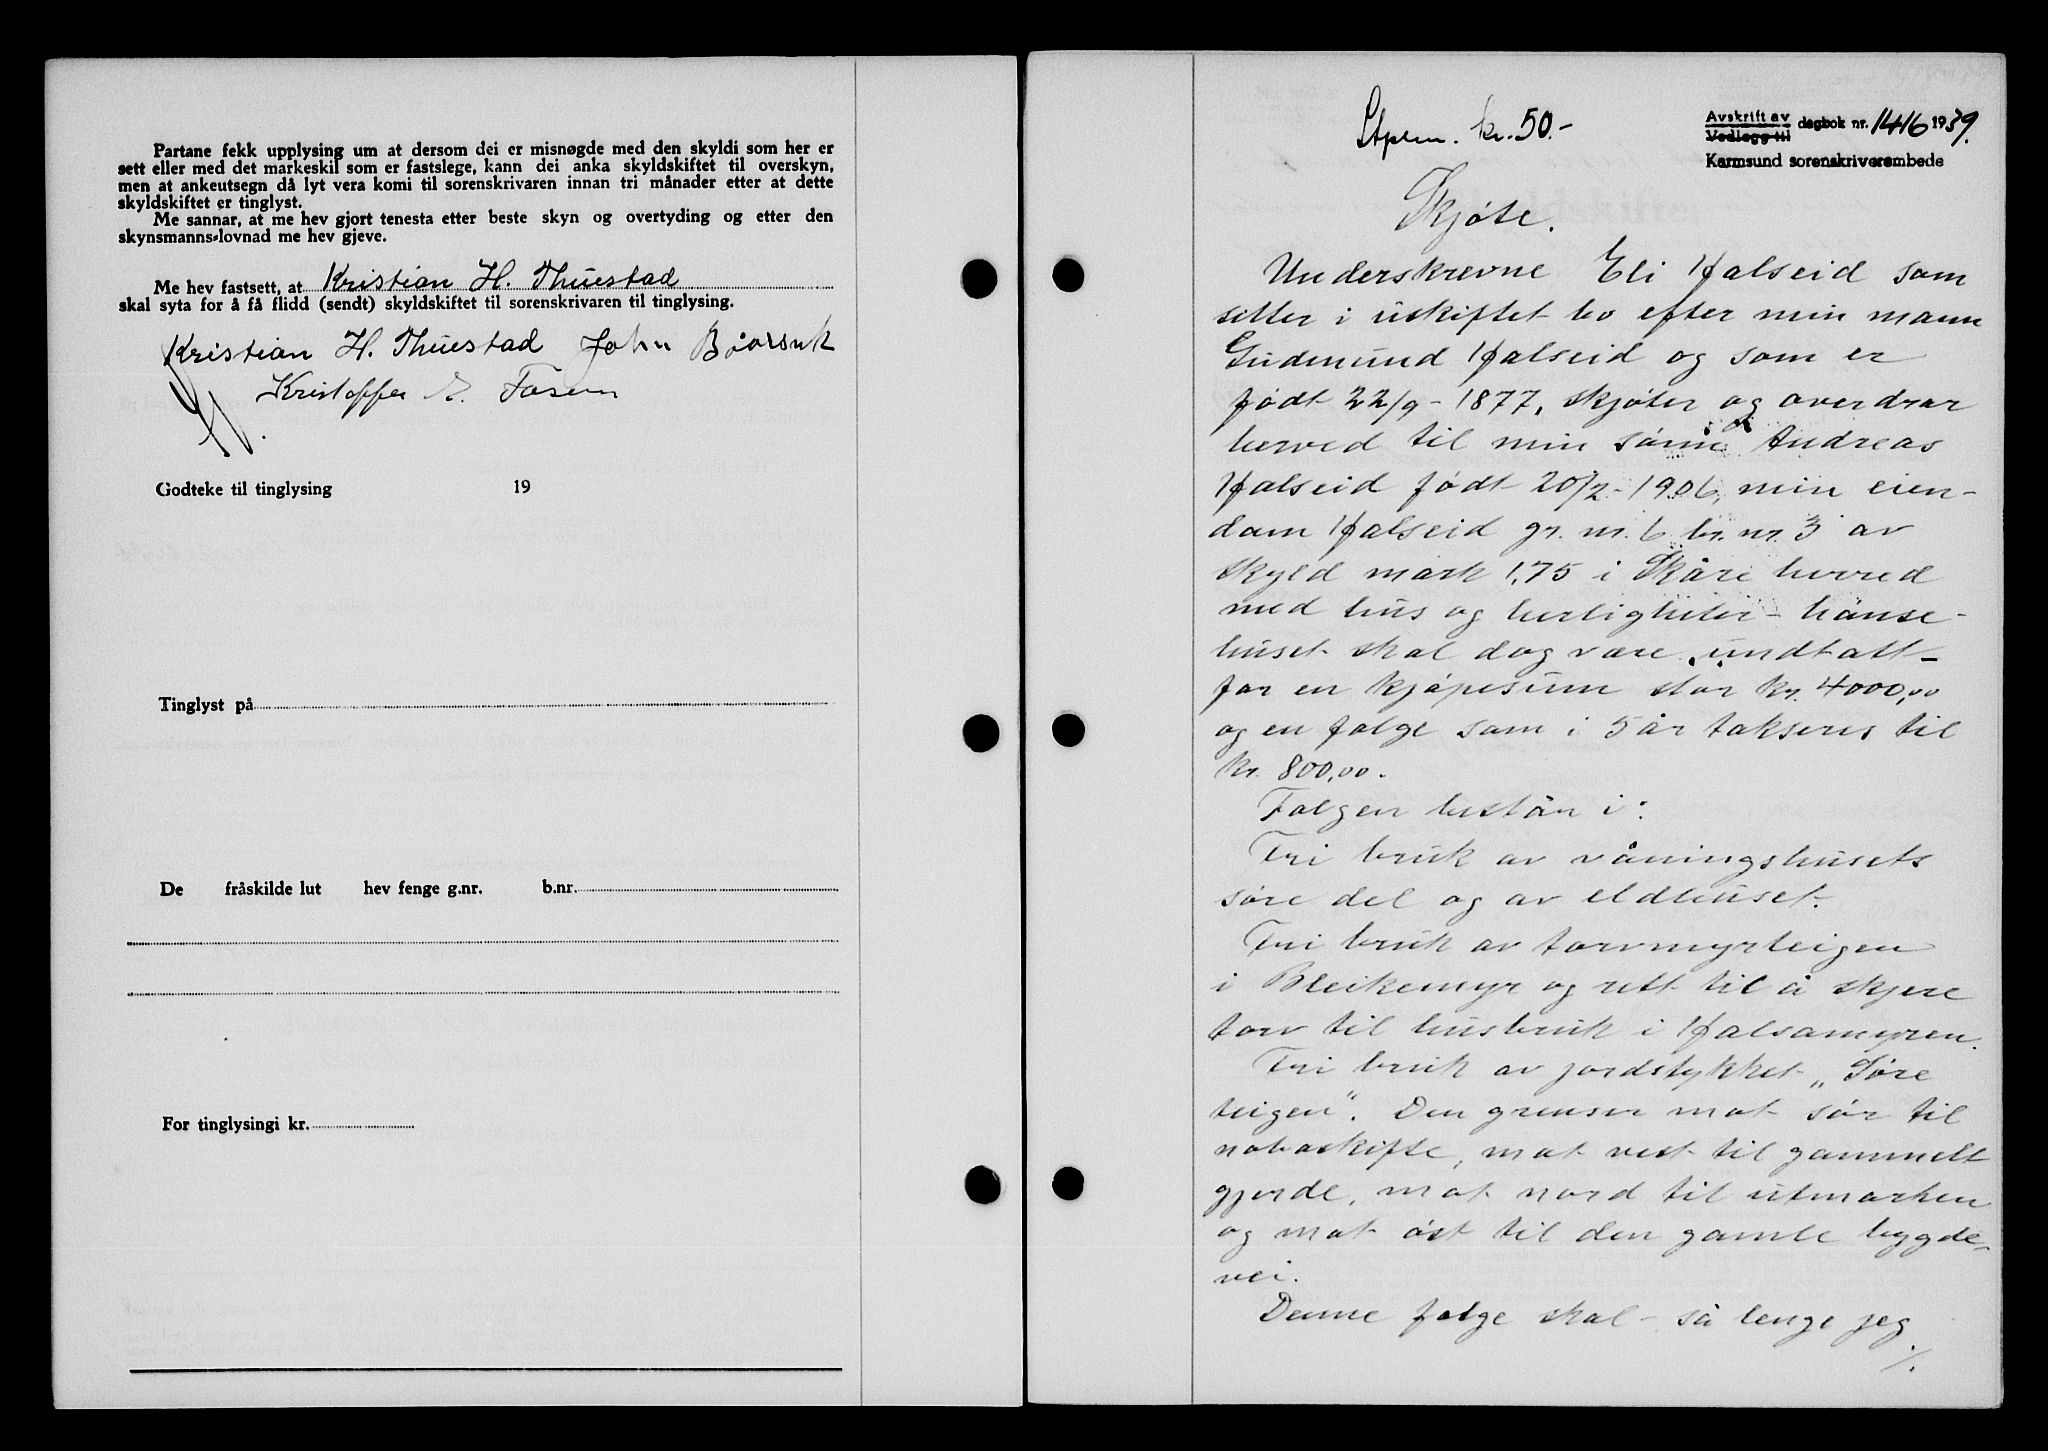 Partane fekk upplysing um at dersom dei er misnøgde med den skyldi som her er
sett eller med det markeskil som er fastslege, kann dei anka skyldskiftet til overskyn,
men at ankeutsegn då lyt vera komi til sorenskrivaren innan tri månader etter at dette
skyldskiftet er tinglyst.
Me sannar, at me hev gjort tenesta etter beste skyn og overtyding og etter den
skynsmanns-lovnad me hev gjeve.
Me hev fastsett, at Kristian H. Thuestad
skal syta for å få flidd (sendt) skyldskiftet til sorenskrivaren til tinglysing.
Kristian H. Thuestad John
Kristoffer E. Fosen
Godteke til tinglysing 19
Tinglyst på
De fråskilde lut hev fenge g.nr. b.nr.
For tinglysingi kr.
Stplm. kr. 50.-
Avskrift av
Vedlegg til dagbok nr. 1416 1939.
Karmsund sorenskriverembede
Skjøte.
Underskrevne Eli Halseid som
sitter i uskiftet bo efter min mann
Gudmund Halseid og som er
født 22/9 - 1877, skjøter og overdrar
herved til min sønn Andreas
Halseid født 20/2 - 1906, min eien-
dom Halseid gr. nr. 6 br. nr. 3 av
skyld mark 1,75 i Skåre herred
med hus og herligheter - hønse-
huset skal dog være undtatt -
for en kjøpesum stor kr. 4000,00
og en folge som i 5 år takseres til
kr. 800,00.
Folgen består i:
Fri bruk av våningshusets
søre del og av eldhuset.
Fri bruk av torvmyrteigen
i Bleikemyr og rett til å skjere
torv til husbruk i Halsamyren.
Fri bruk av jordstykket „Søre
teigen". Den grenser mot sør til
naboskifte, mot vest til gammelt
gjerde, mot nord til utmarken
og mot øst til den gamle bygde-
vei.
Denne folge skal - så lenge jeg
./.